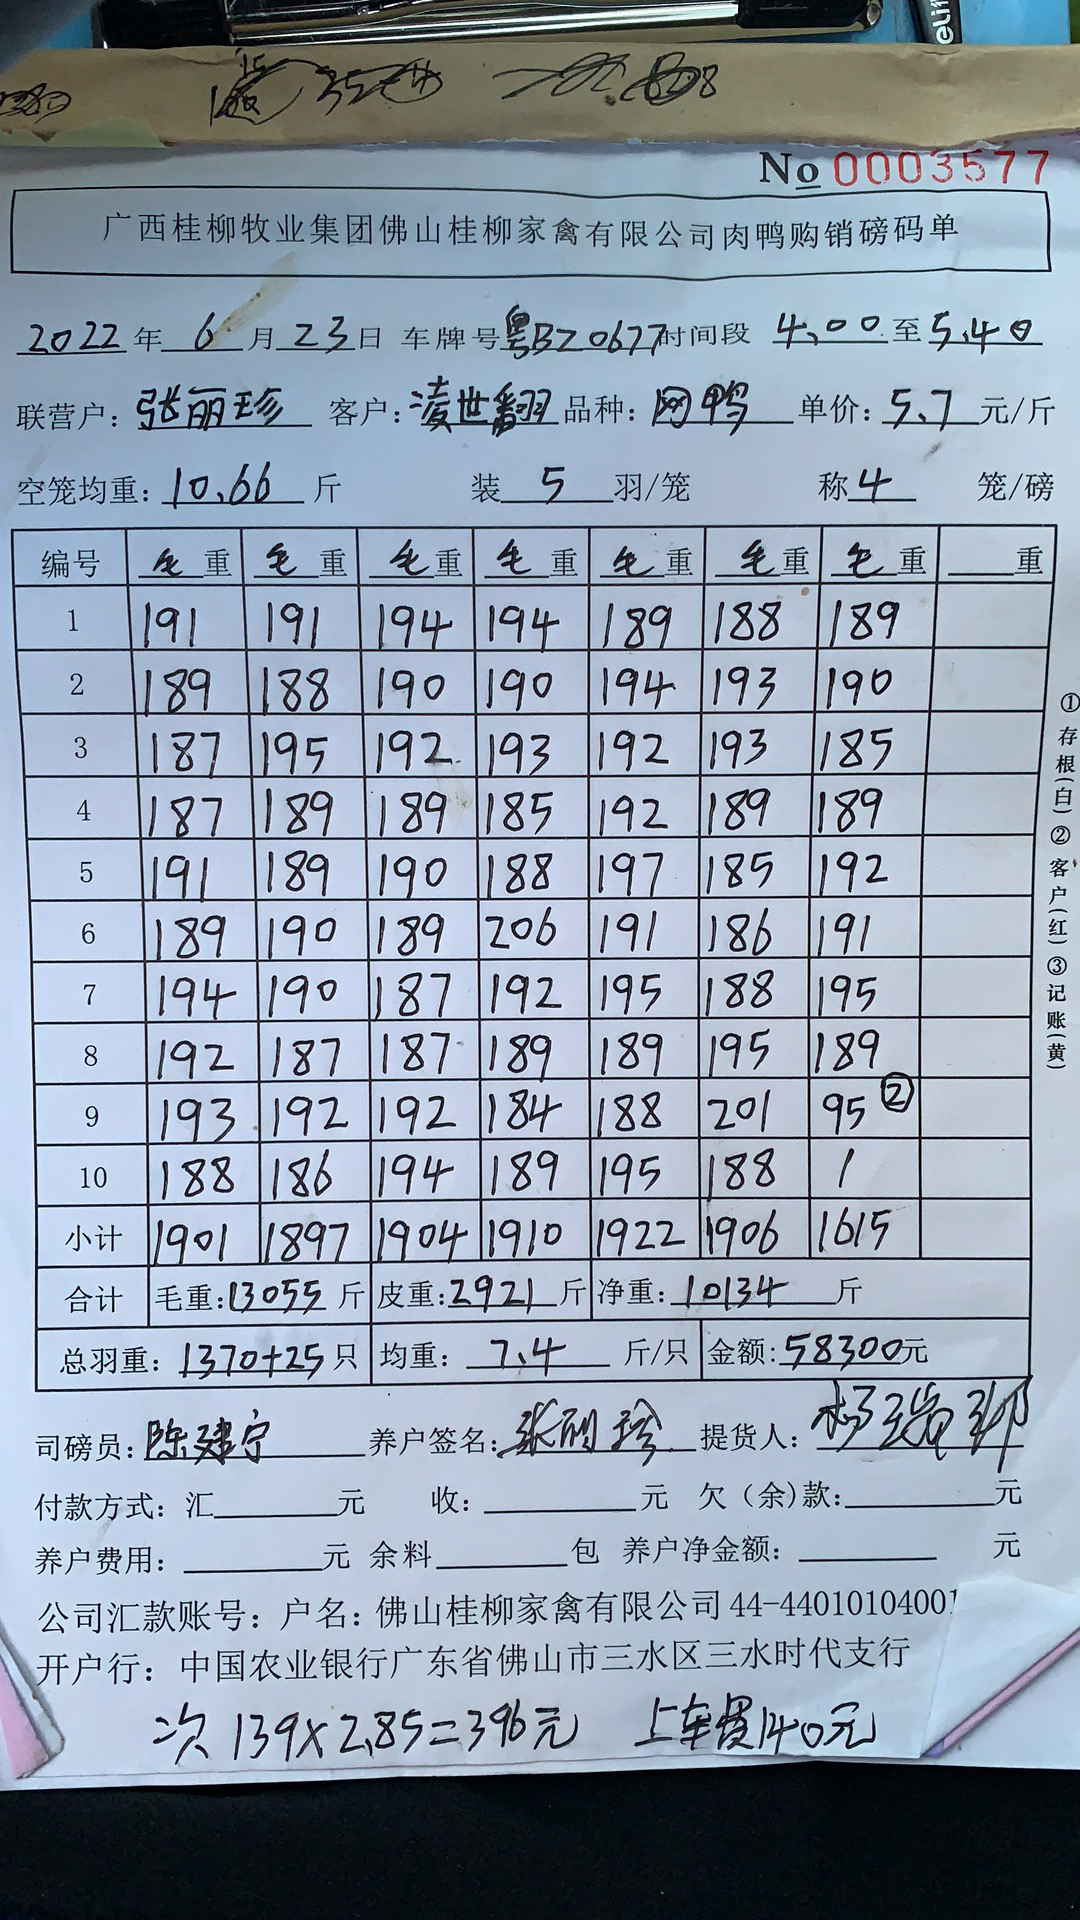 deli
No 0003577
广西桂柳牧业集团佛山桂柳家禽有限公司肉鸭购销磅码单
2022年6月23日 车牌号粤BZ0677时间段 4.00至5.40
联营户：张丽珍 客户：凌世翻 品种：网鸭 单价：5.7元/斤
空笼均重：10.66斤 装5羽/笼 称4笼/磅
编号 毛重 毛重 毛重 毛重 毛重 毛重 毛重 重
1 191 191 194 194 189 188 189
2 189 188 190 190 194 193 190
3 187 195 192 193 192 193 185
4 187 189 189 185 192 189 189
5 191 189 190 188 197 185 192
6 189 190 189 206 191 186 191
7 194 190 187 192 195 188 195
8 192 187 187 189 189 195 189
9 193 192 192 184 188 201 95 ②
10 188 186 194 189 195 188 /
小计 1901 1897 1904 1910 1922 1906 1615
合计 毛重：13055斤 皮重：2921斤 净重：10134斤
总羽重：1370+25只 均重：7.4斤/只 金额：58300元
①存根(白)②客户(红)③记账(黄)
司磅员：陈建宁 养户签名：张丽珍 提货人：
付款方式：汇 元 收： 元 欠（余)款： 元
养户费用： 元 余料 包 养户净金额： 元
公司汇款账号：户名：佛山桂柳家禽有限公司 44-44010104001
开户行：中国农业银行广东省佛山市三水区三水时代支行
次 139×2.85=396元 上车费140元